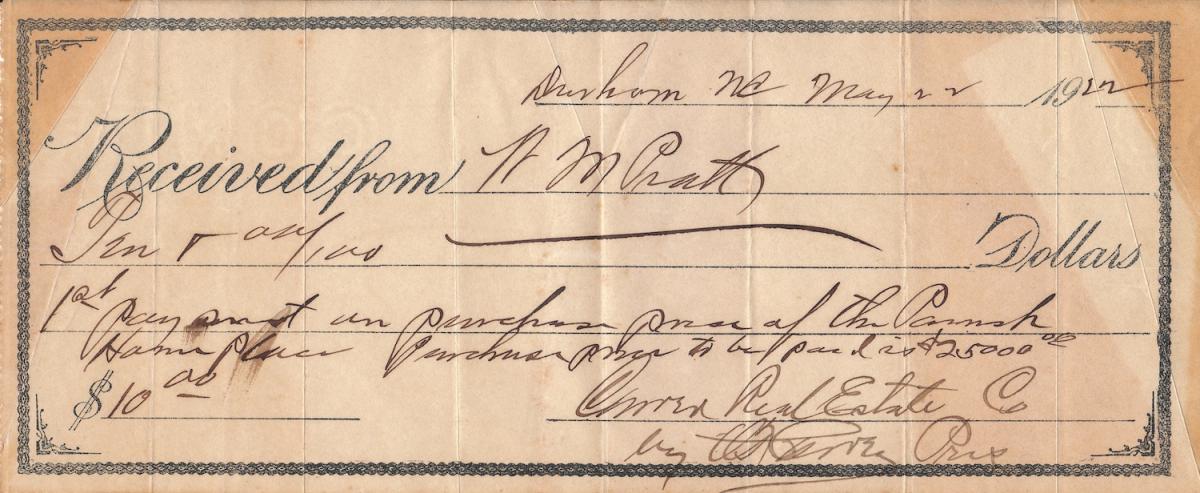 Durham NC May 22 1922
Received from W M Pratt
Ten & 00/100 Dollars
1st payment on purchase price of the Parrish
Home place Purchase price to be paid is $25000 00
$ 10 00 Carver Real Estate Co
by Carver Pres